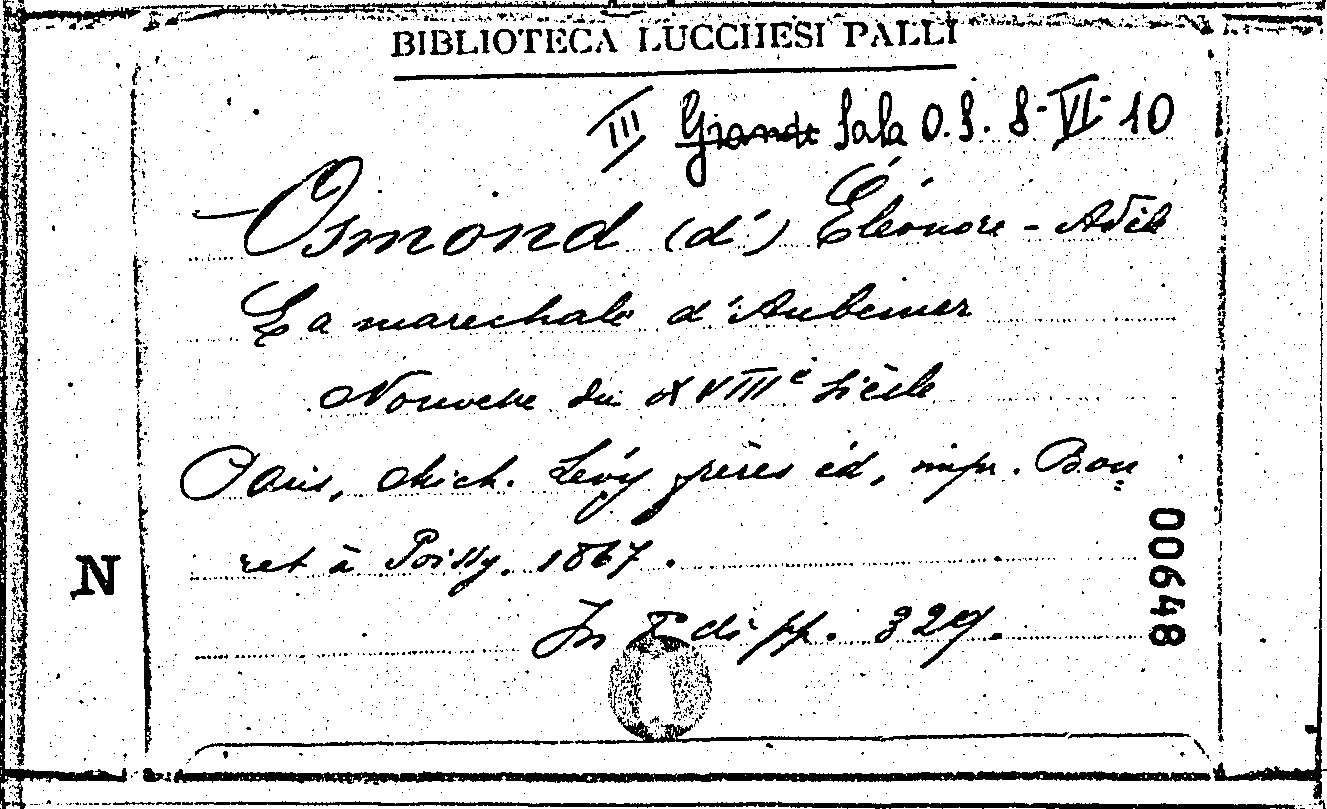 BIBLIOTECA LUCCHESI PALLI
III Grande Sala O. S. 8-VI-10
Osmond (d') Éléonore - Adèle
La marechale d'Aubemer
Nouvelle du XVIIIe Siècle
Paris, Mich. Lévy frères éd, impr. Bou
ret à Poissy. 1867.
In 8° di pp. 329.
N
00648